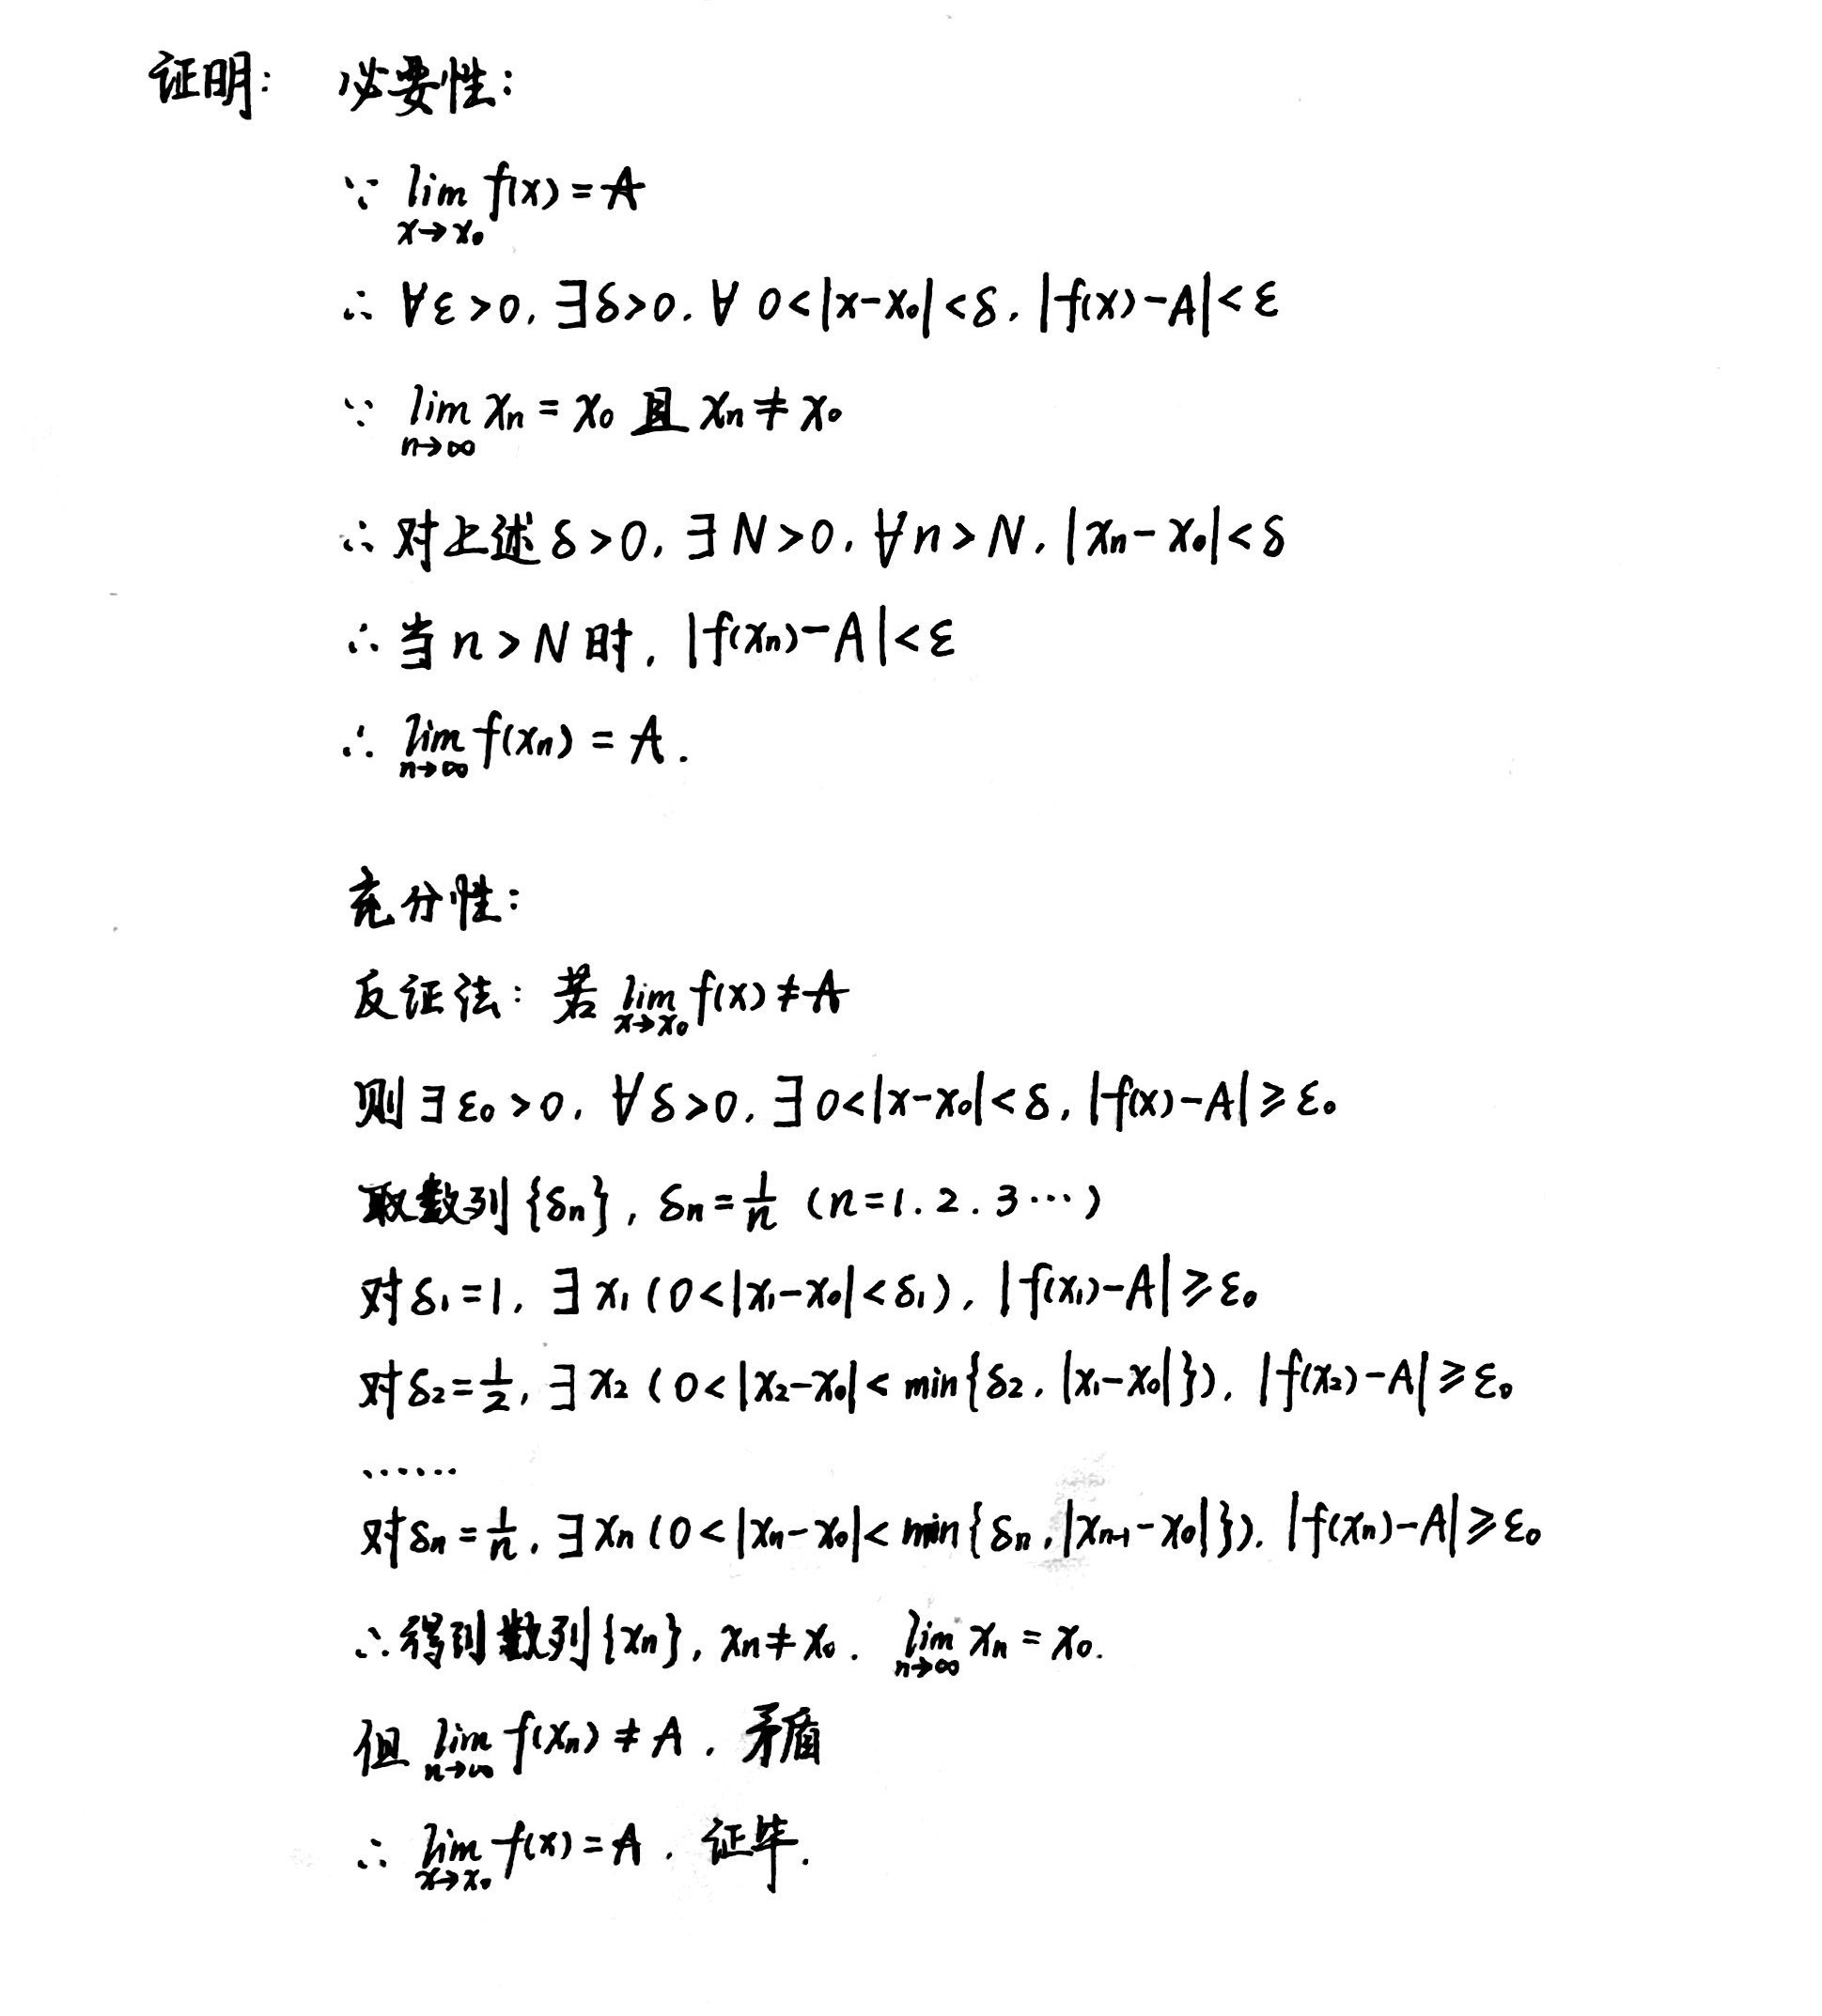 证明： 必要性：
∵ lim_{x→x₀} f(x) = A
∴ ∀ε>0, ∃δ>0, ∀ 0<|x-x₀|<δ, |f(x)-A|<ε
∵ lim_{n→∞} xₙ = x₀ 且 xₙ ≠ x₀
∴ 对上述 δ>0, ∃N>0, ∀n>N, |xₙ-x₀|<δ
∴ 当 n>N 时, |f(xₙ)-A|<ε
∴ lim_{n→∞} f(xₙ) = A.
充分性：
反证法：若 lim_{x→x₀} f(x) ≠ A
则 ∃ε₀>0, ∀δ>0, ∃ 0<|x-x₀|<δ, |f(x)-A|≥ε₀
取数列{δₙ}, δₙ=1/n (n=1.2.3…)
对δ₁=1, ∃x₁(0<|x₁-x₀|<δ₁), |f(x₁)-A|≥ε₀
对δ₂=1/2, ∃x₂(0<|x₂-x₀|<min{δ₂, |x₁-x₀|}), |f(x₂)-A|≥ε₀
……
对δₙ=1/n, ∃xₙ(0<|xₙ-x₀|<min{δₙ, |xₙ₋₁-x₀|}), |f(xₙ)-A|≥ε₀
∴得到数列{xₙ}, xₙ≠x₀, lim_{n→∞} xₙ = x₀.
但 lim_{n→∞} f(xₙ) ≠ A, 矛盾
∴ lim_{x→x₀} f(x) = A, 证毕.